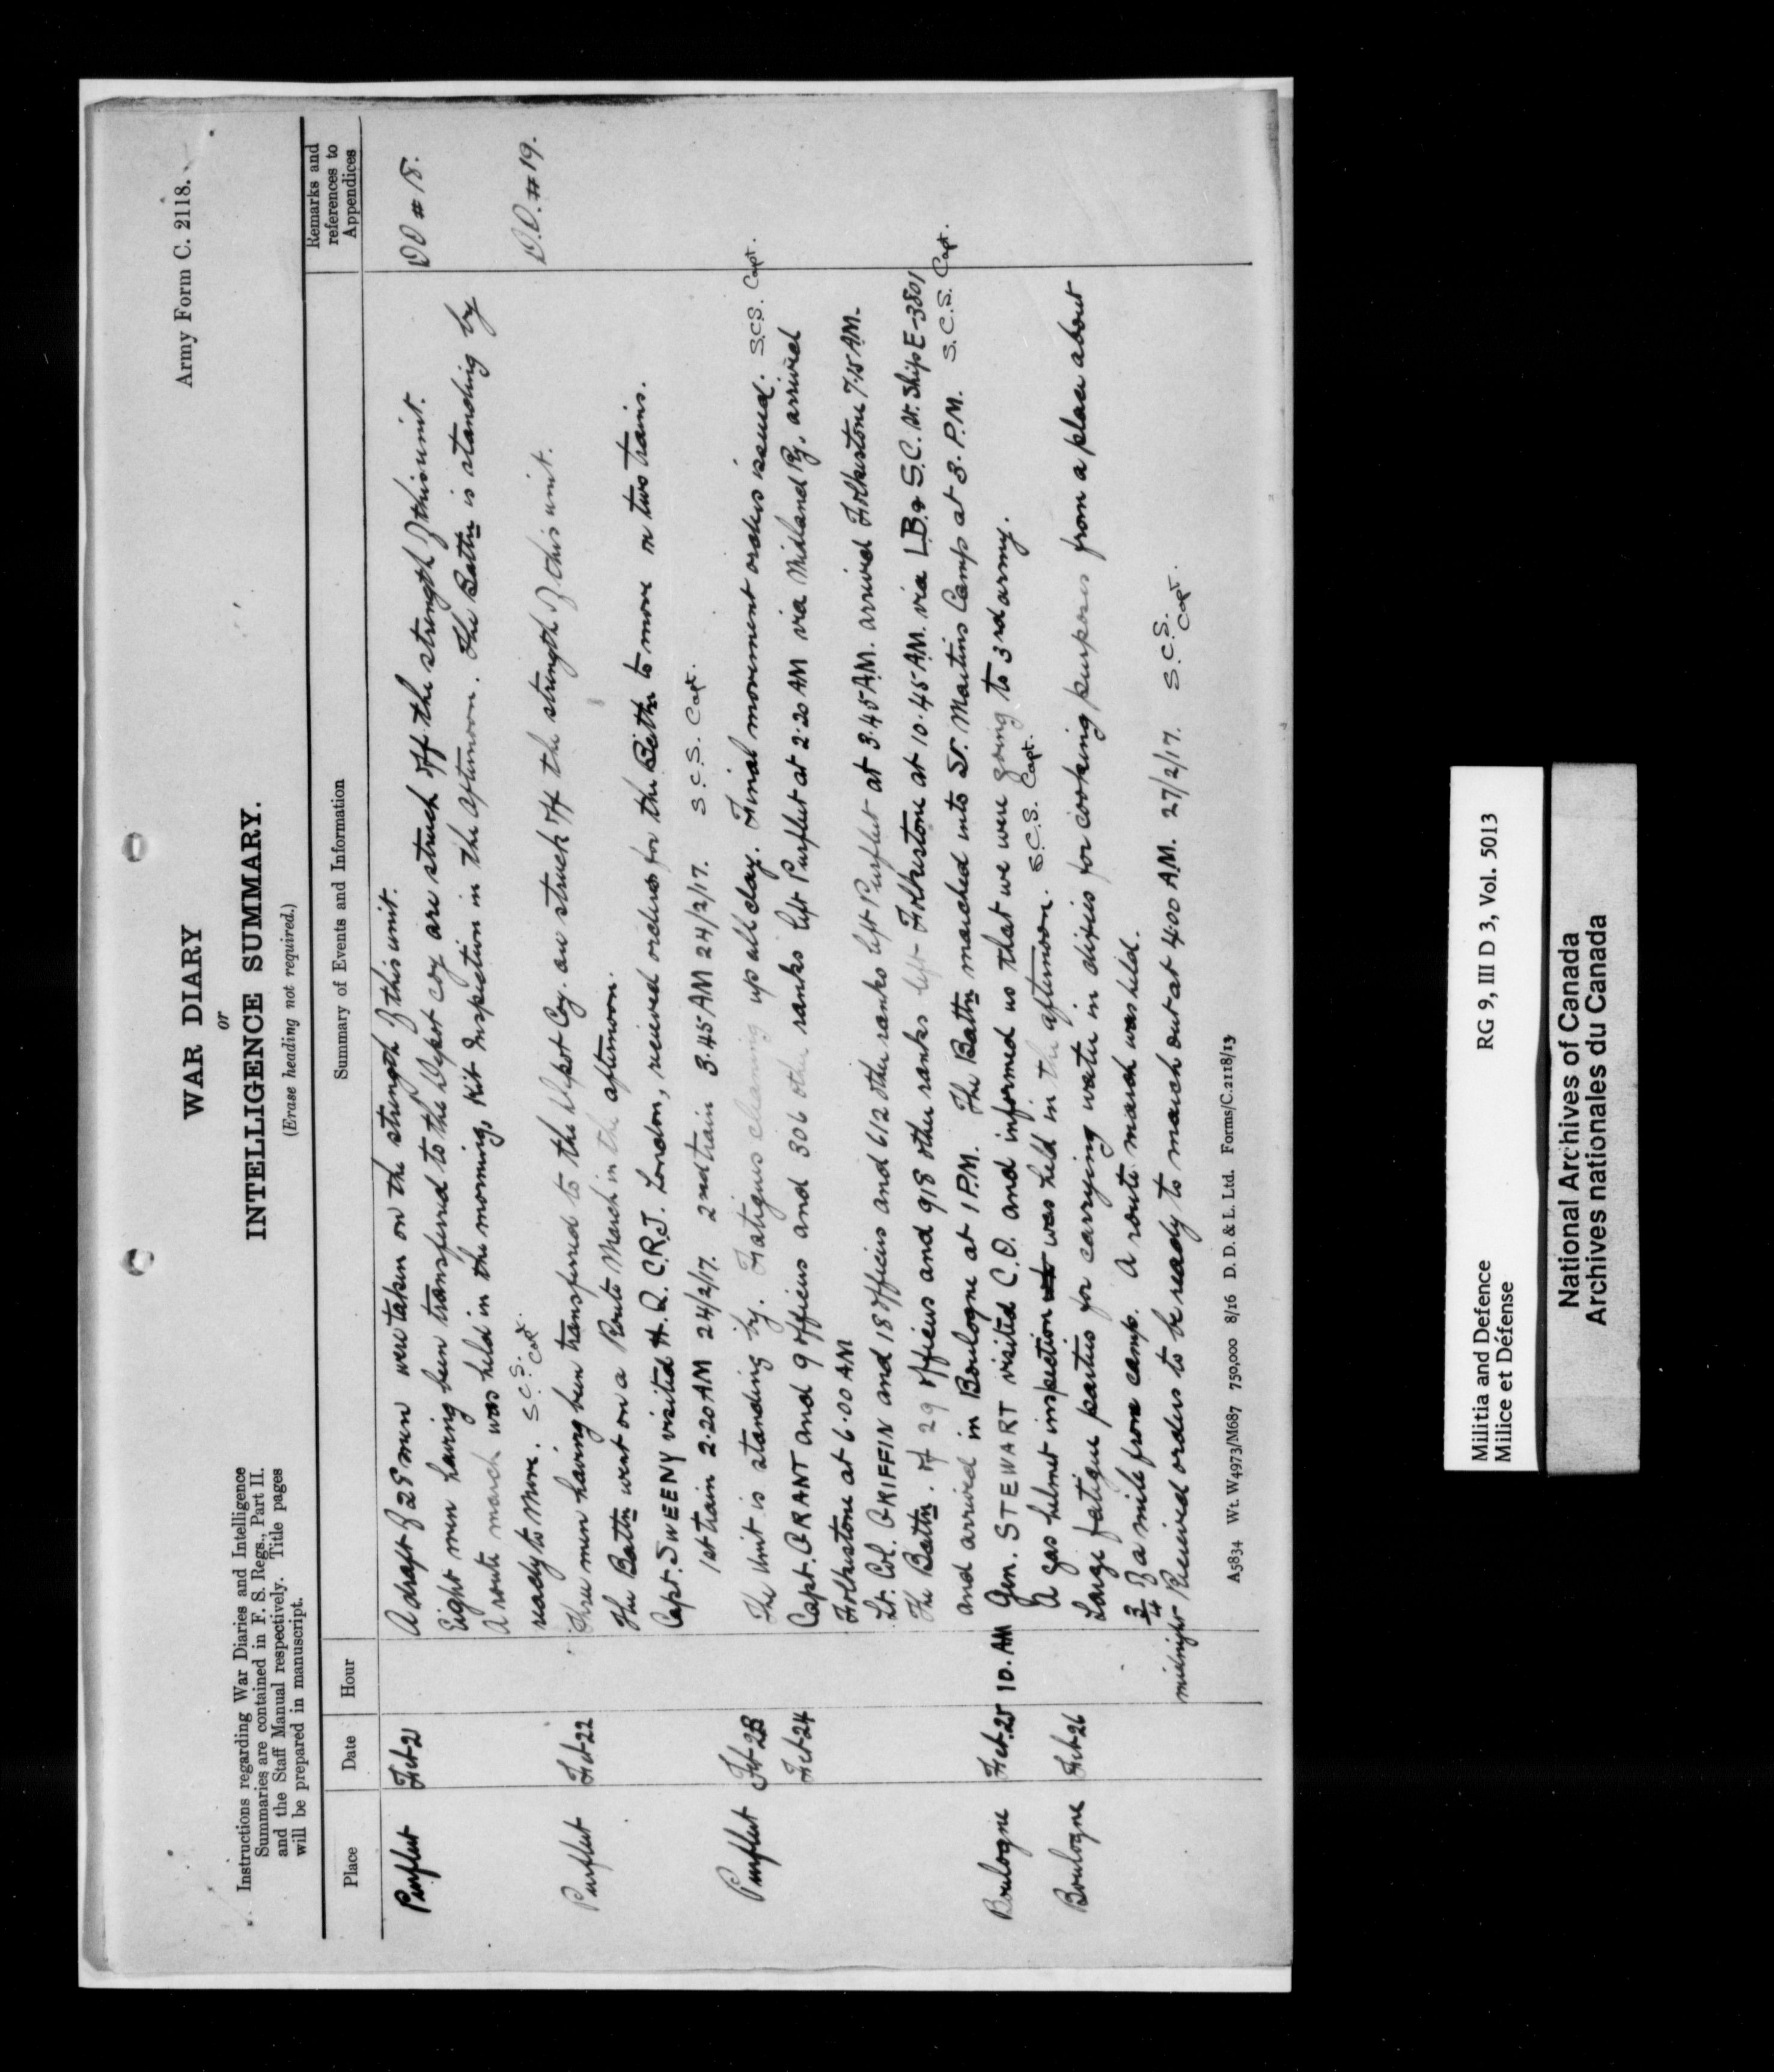 Army Form C. 2118.
WAR DIARY
or
INTELLIGENCE SUMMARY.
(Erase heading not required.)
Instructions regarding War Diaries and Intelligence
Summaries are contained in F. S. Regs., Part II.
and the Staff Manual respectively. Title pages
will be prepared in manuscript.
Place Date Hour Summary of Events and Information Remarks and references to Appendices
Purfleet Feb 21 A draft of 28 men were taken on the strength of this unit. DO # 18.
Eight men having been transferred to the Depot Coy are struck off the strength of this unit.
A route march was held in the morning, kit inspection in the afternoon. The Battn is standing by
ready to move. S.C.S. Capt. D.O. # 19.
Purfleet Feb 22 Three men having been transferred to the Depot Coy. are struck off the strength of this unit.
The Battn went on a Route March in the afternoon.
Capt. SWEENY visited H.Q. C.R.T. London, received orders for the Battn to move in two trains.
1st train 2.20 AM 24/2/17. 2nd train 3.45 AM 24/2/17. S.C.S. Capt.
Purfleet Feb 23 The Unit is standing by. Fatigues cleaning up all day. Final movement orders issued. S.C.S. Capt.
Feb 24 Capt. GRANT and 9 officers and 306 other ranks left Purfleet at 2.20 AM via Midland Ry, arrived
Folkestone at 6.00 AM
Lt. Col. GRIFFIN and 18 officers and 612 other ranks left Purfleet at 3.45 A.M. arrived Folkestone 7.15 AM.
The Battn. of 29 officers and 918 other ranks left Folkestone at 10.45 A.M. via L.B. & S.C. St. Ship E-3801
and arrived in Boulogne at 1 P.M. The Battn marched into St. Martins Camp at 3. P.M. S.C.S. Capt.
Boulogne Feb. 25 10. AM Gen. STEWART visited C.O. and informed us that we were going to 3rd army.
A gas helmet inspection was held in the afternoon. S.C.S. Capt.
Boulogne Feb 26 Large fatigue parties for carrying water in dixies for cooking purposes from a place about
3/4 of a mile from camp. A route march was held.
midnight Received orders to be ready to march out at 4.00 A.M. 27/2/17. S.C.S. Capt.
A5834 Wt. W4973/M687 750,000 8/16 D. D. & L. Ltd. Forms/C.2118/13
Militia and Defence RG 9, III D 3, Vol. 5013
Milice et Défense
National Archives of Canada
Archives nationales du Canada